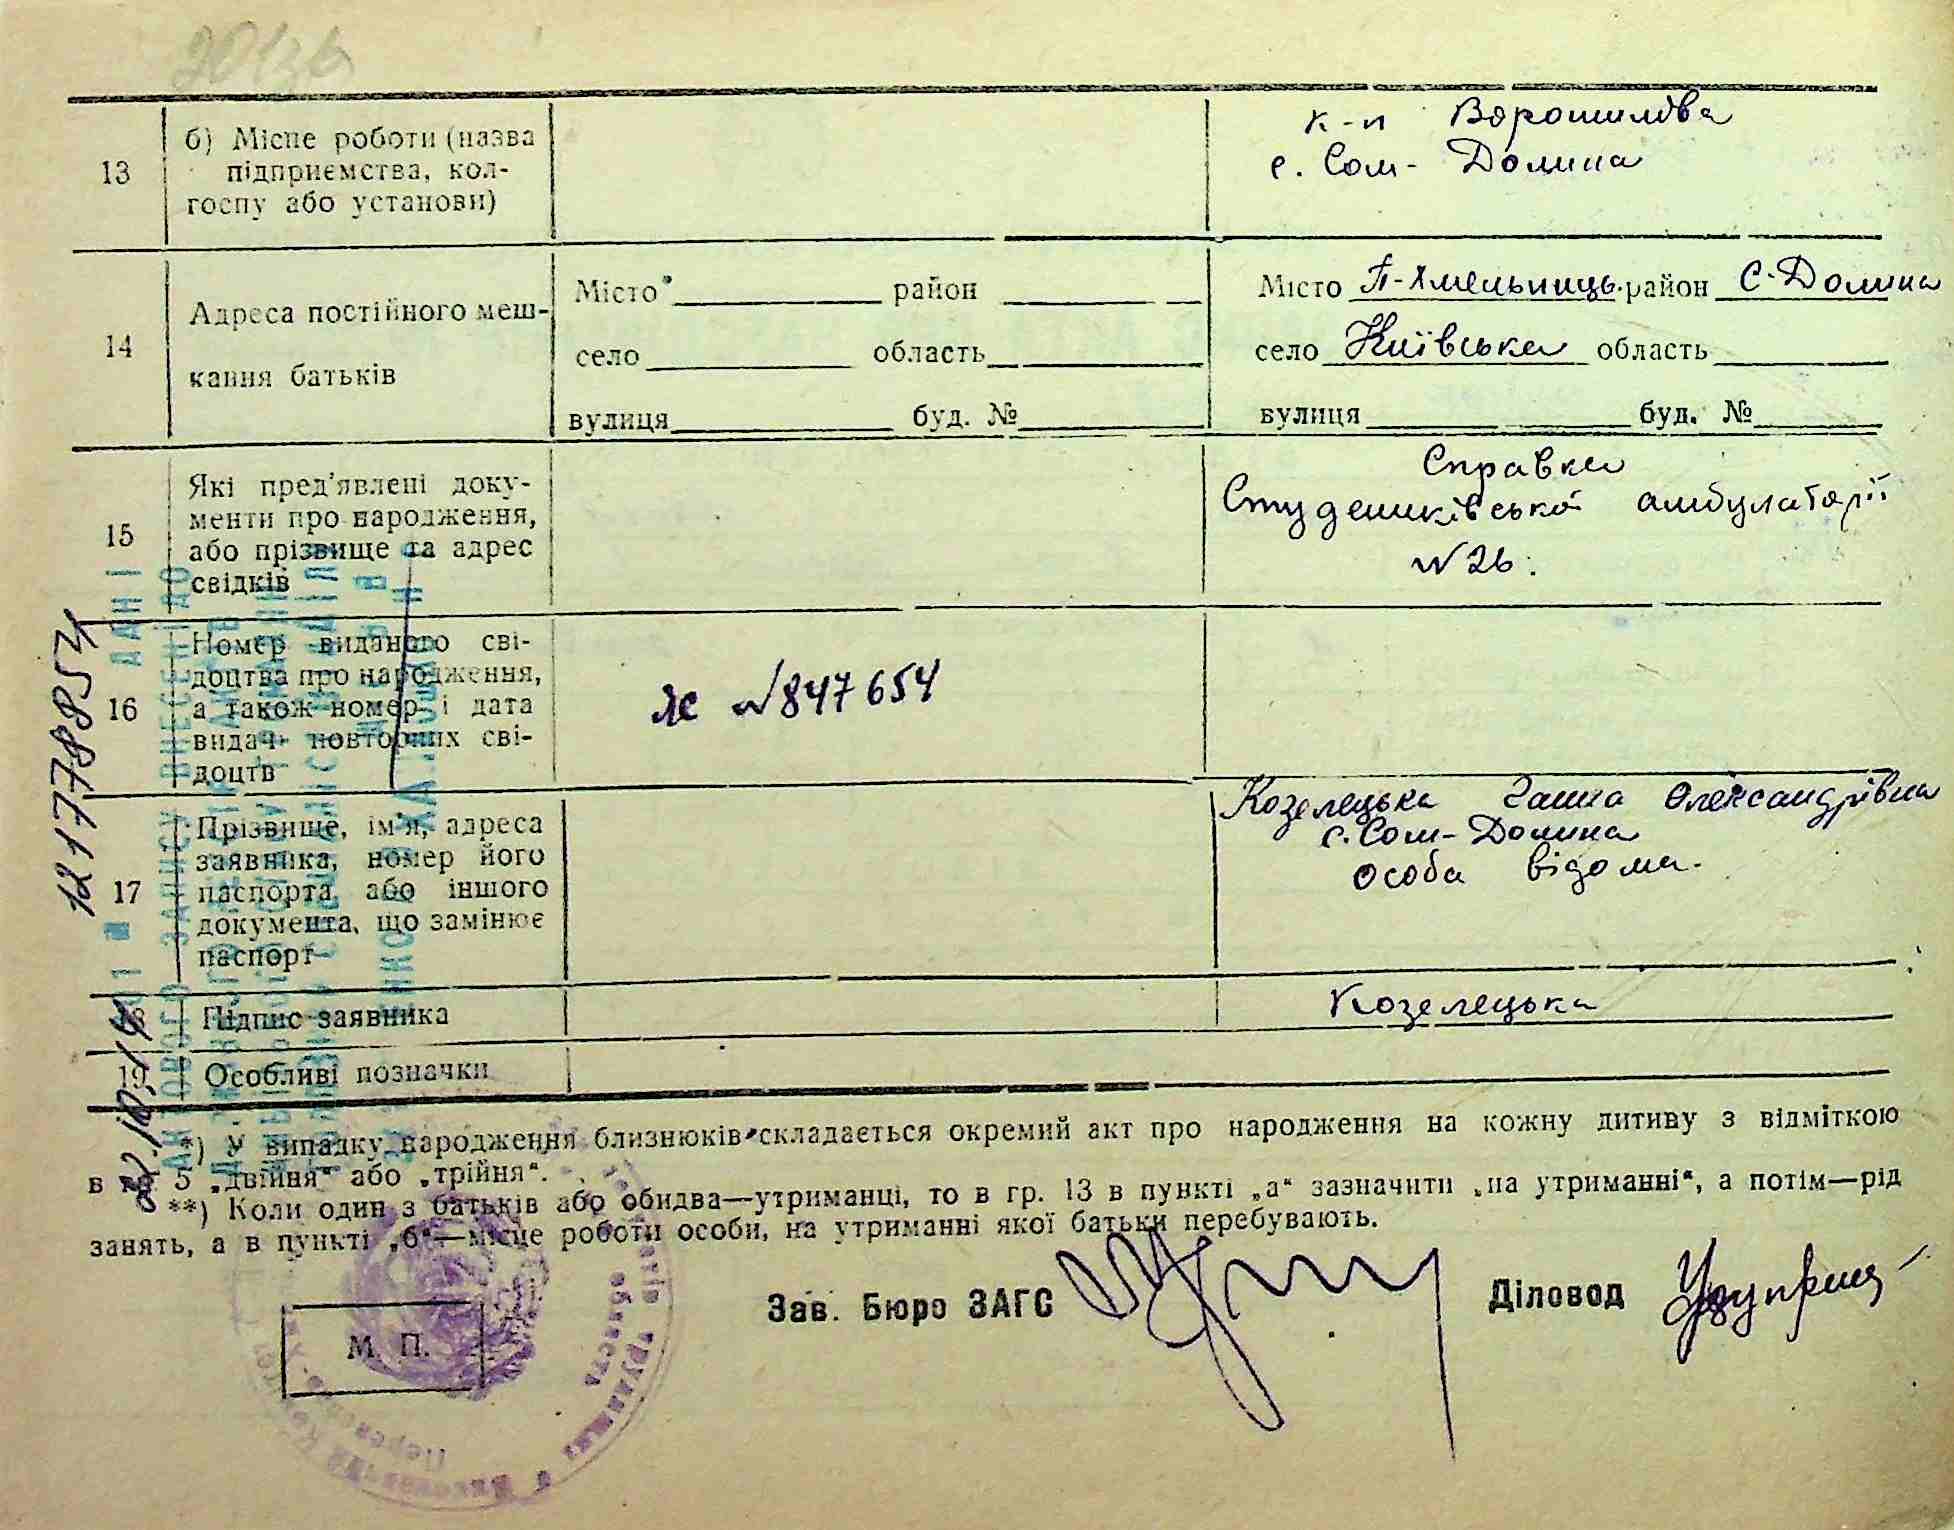 13
б) Місце роботи (назва
підприємства, кол-
госпу або установи)
к-п Ворошилова
с. Сом-Долина
14
Адреса постійного меш-
кання батьків
Місто район
село область
вулиця буд. №
Місто П-Хмельниць. район С-Долина
село Київська область
вулиця буд. №
15
Які пред'явлені доку-
менти про народження,
або прізвище та адрес
свідків
Справка
Студениківської амбулаторії
№ 26.
16
Номер виданого сві-
доцтва про народження,
а також номер і дата
видачі повторних сві-
доцтв
ЯЄ №847654
17
Прізвище, ім'я, адреса
заявника, номер його
паспорта або іншого
документа, що замінює
паспорт
Козелецька Ганна Олександрівна
с. Сом-Долина
особа відома.
18
Підпис заявника
Козелецька
19
Особливі позначки
*) У випадку народження близнюків складається окремий акт про народження на кожну дитиву з відміткою
в гр. 5 „двійня“ або „трійня“.
**) Коли один з батьків або обидва—утриманці, то в гр. 13 в пункті „а“ зазначити „на утриманні“, а потім—рід
занять, а в пункті „б“—місце роботи особи, на утриманні якої батьки перебувають.
М. П.
Зав. Бюро ЗАГС
Діловод